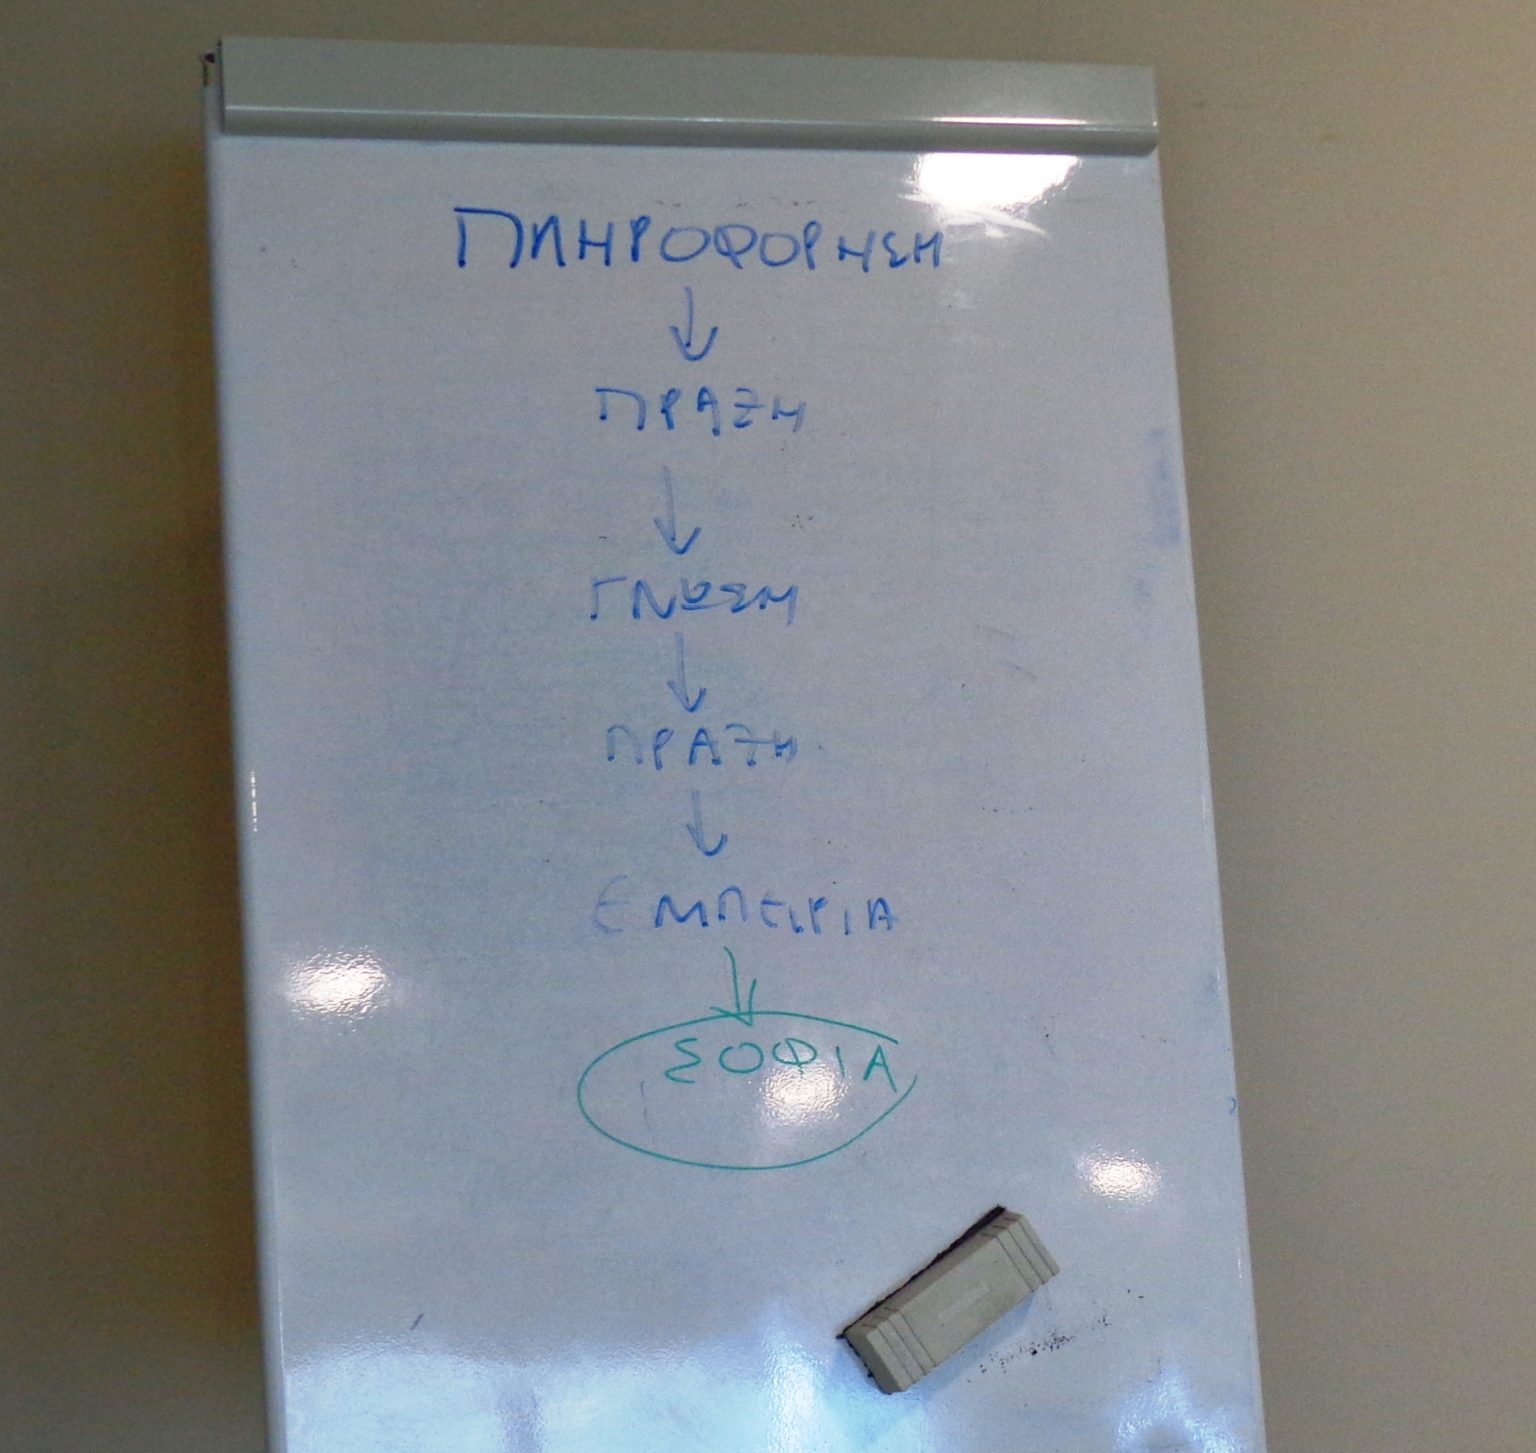 ΠΛΗΡΟΦΟΡΗΣΗ
ΠΡΑΞΗ
ΓΝΩΣΗ
ΠΡΑΞΗ
ΕΜΠΕΙΡΙΑ
ΣΟΦΙΑ